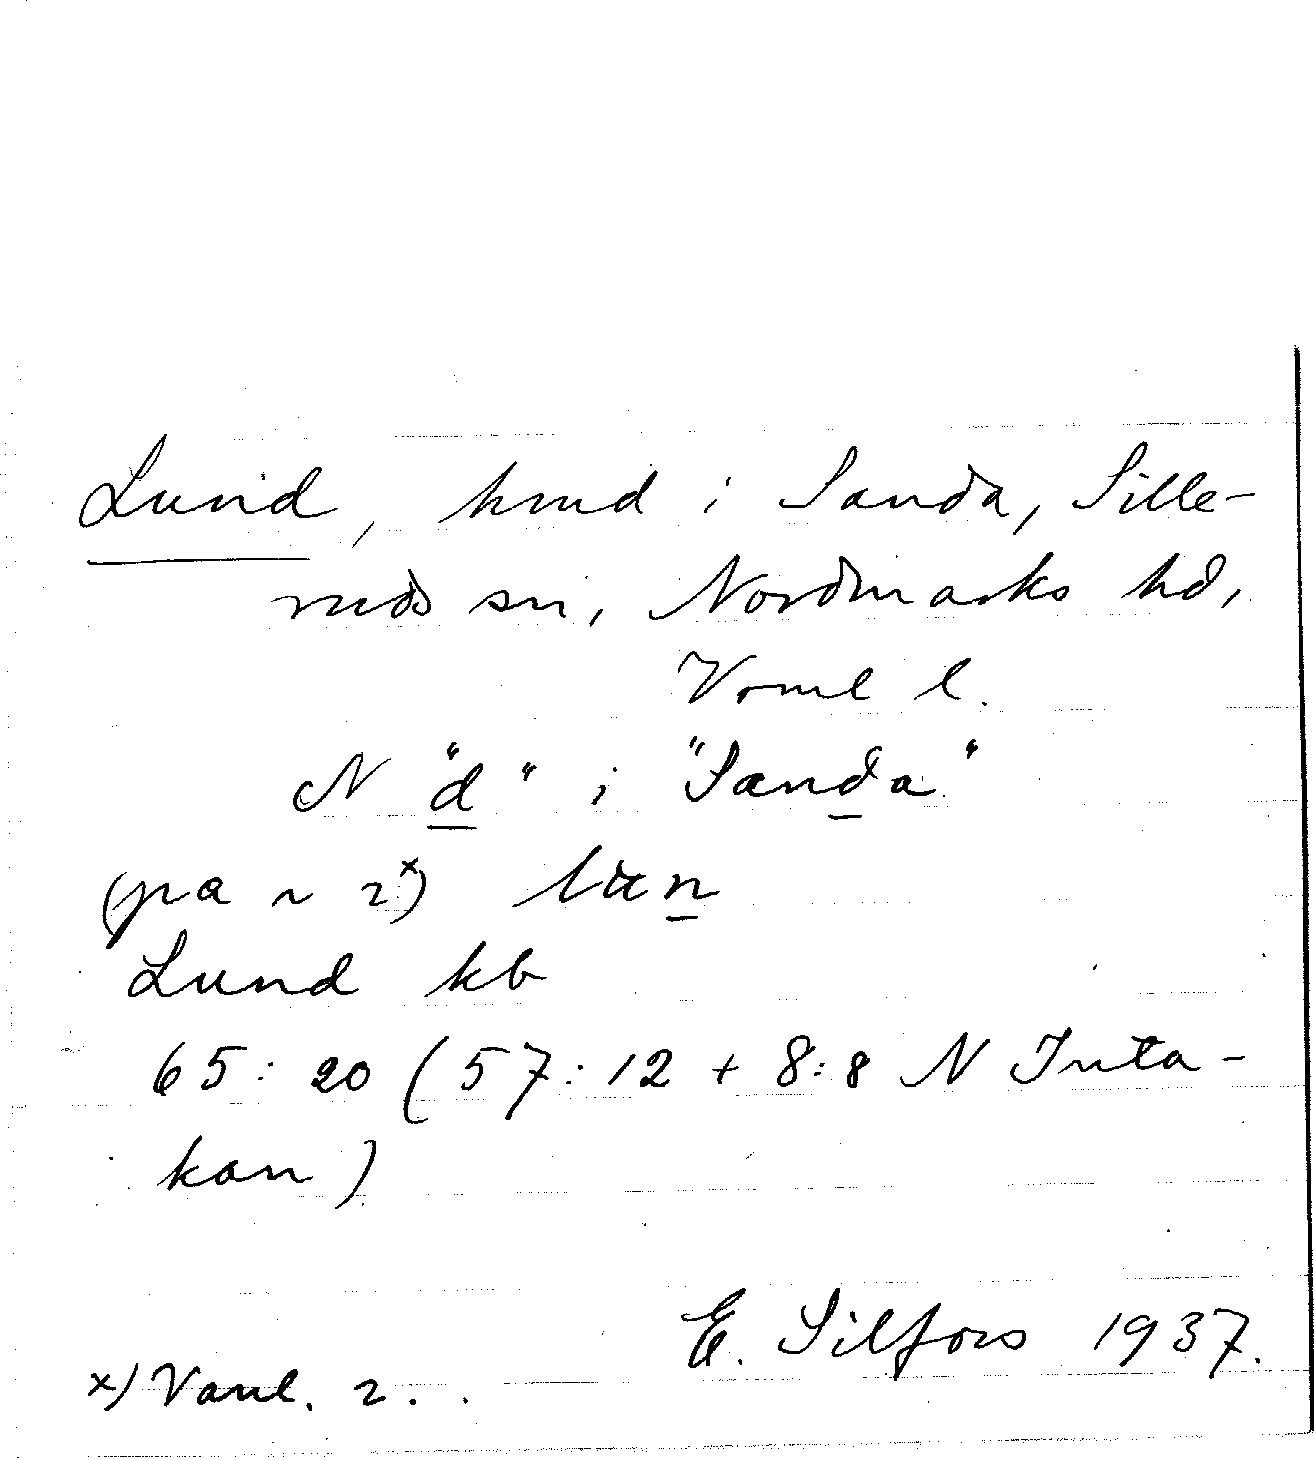 Lund, hmd i Sanda, Sille-
ruds sn, Nordmarks hd,
Vrml l.
N "d" i "Sanda"
(på ~ 2x)
Lund kb
65:20 (57:12 + 8:8 N Juta-
kan)
E. Silfors 1937.
x) Vanl. 2.